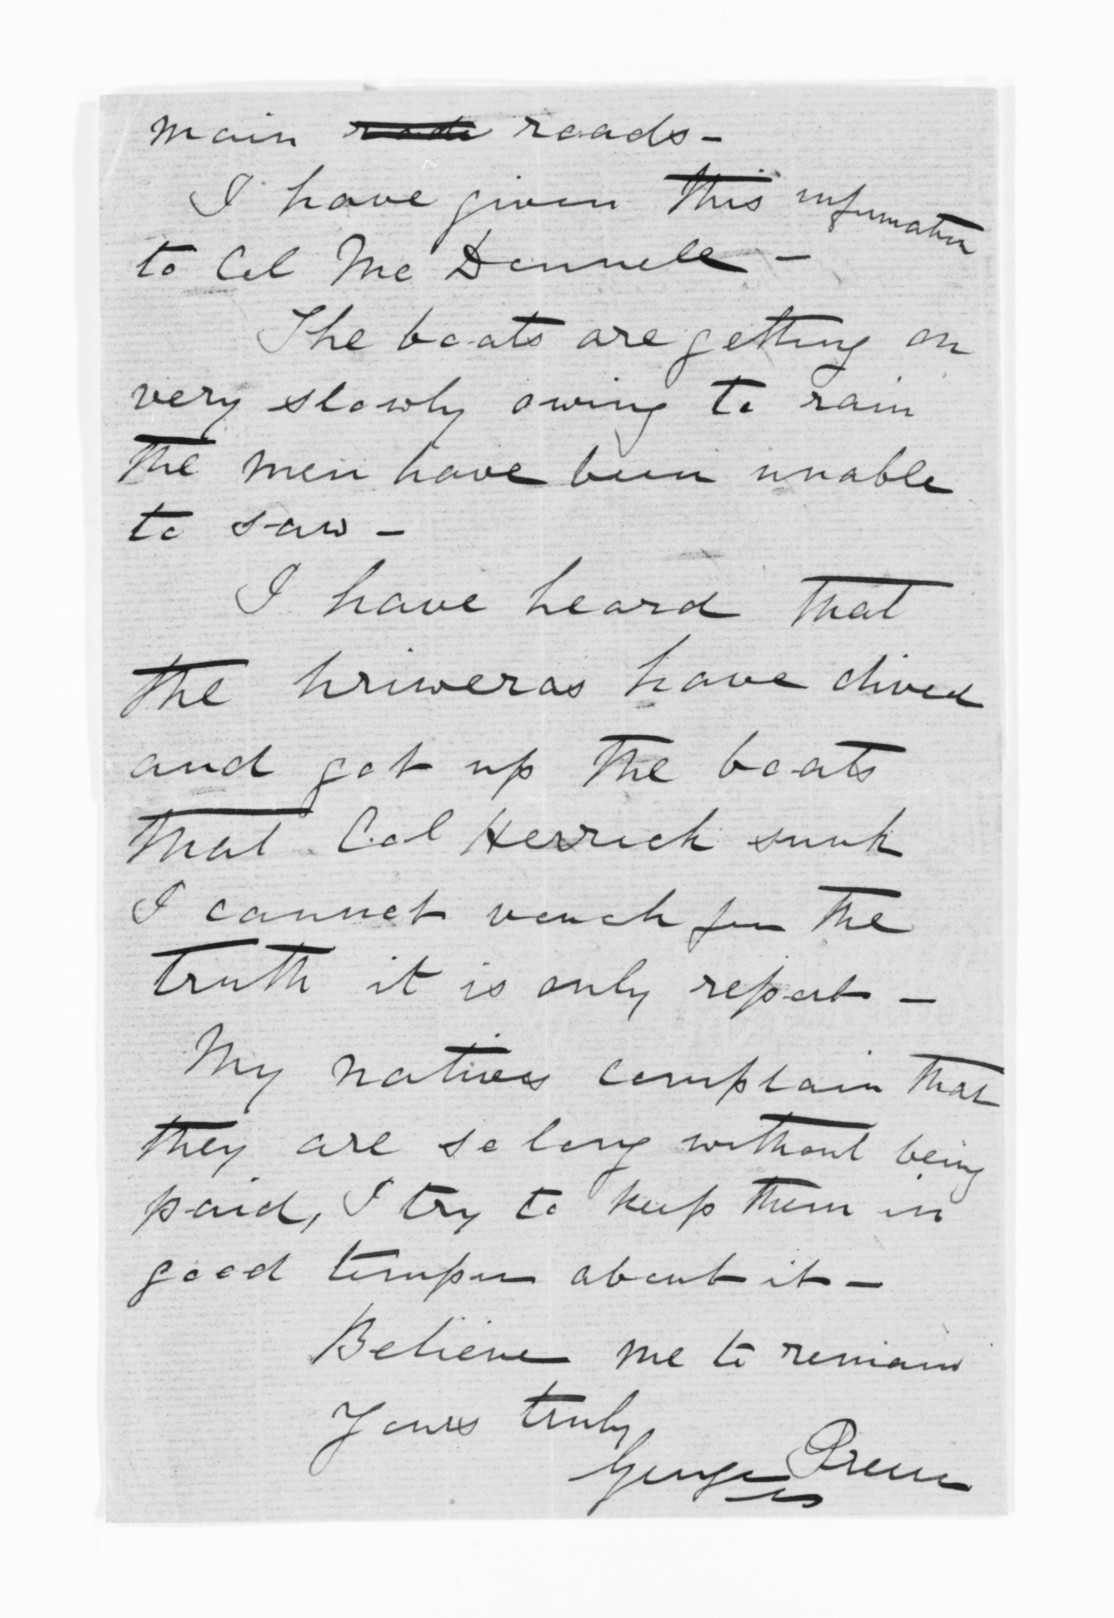 main rode roads -
I have given this information
to Col Mc Donnell -
The boats are getting on
very slowly owing to rain
the men have been unable
to saw -
I have heard that
the hriweras have dived
and got up the boats
that Col Herrick sunk
I cannot vouch for the
truth it is only report -
My natives complain that
they are so long without being
paid, I try to keep them in
good temper about it -
Believe me to remain
Yours truly
George Preece